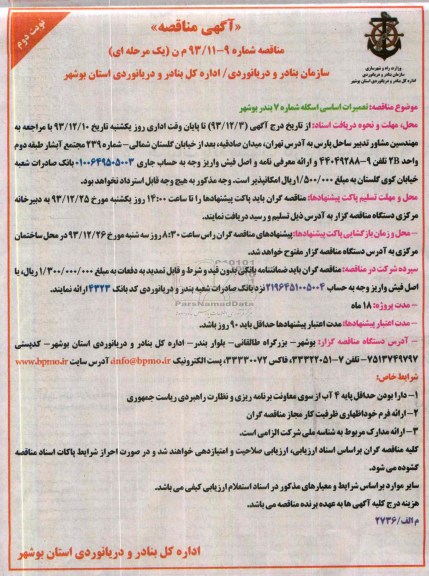 نوبت دوم
«آگهی مناقصه»
مناقصه شماره ۹-۹۳/۱۱ م ن (یک مرحله ای)
سازمان بنادر و دریانوردی/ اداره کل بنادر و دریانوردی استان بوشهر
وزارت راه و شهرسازی
سازمان بنادر و دریانوردی
اداره کل بنادر و دریانوردی استان بوشهر
موضوع مناقصه: تعمیرات اساسی اسکله شماره ۷ بندر بوشهر
محل، مهلت و نحوه دریافت اسناد: از تاریخ درج آگهی (۹۳/۱۲/۳) تا پایان وقت اداری روز یکشنبه تاریخ ۹۳/۱۲/۱۰ با مراجعه به
مهندسین مشاور تدبیر ساحل پارس به آدرس تهران، میدان صادقیه، بعد از خیابان گلستان شمالی– شماره ۲۳۹ مجتمع آبشار طبقه دوم
واحد 2B تلفن ۹-۴۴۰۴۹۲۸۸ و ارائه معرفی نامه و اصل فیش واریز وجه به حساب جاری ۰۱۰۰۶۴۹۵۰۵۰۰۳ بانک صادرات شعبه
خیابان کوی گلستان به مبلغ ۱/۵۰۰/۰۰۰ ریال امکانپذیر است. وجه مذکور به هیچ وجه قابل استرداد نخواهد بود.
محل و مهلت تسلیم پاکت پیشنهادها: مناقصه گران باید پاکت پیشنهادها را تا ساعت ۱۴:۰۰ روز یکشنبه مورخ ۹۳/۱۲/۲۵ به دبیرخانه
مرکزی دستگاه مناقصه گزار به آدرس ذیل تسلیم و رسید دریافت نمایند.
– محل و زمان بازگشایی پاکت پیشنهادها: پیشنهادهای مناقصه گران راس ساعت ۸:۳۰ روز سه شنبه مورخ ۹۳/۱۲/۲۶ در محل ساختمان
مرکزی به آدرس دستگاه مناقصه گزار مفتوح خواهد شد.
سپرده شرکت در مناقصه: مناقصه گران باید ضمانتنامه بانکی بدون قید و شرط و قابل تمدید به دفعات به مبلغ ۱/۳۰۰/۰۰۰/۰۰۰ ریال، یا
اصل فیش واریز وجه به حساب ۲۱۹۶۴۵۱۰۰۵۰۰۴ نزد بانک صادرات شعبه بندر و دریانوردی کد بانک ۴۳۲۳ ارائه نمایند.
ParsNamadData
– مدت پروژه: ۱۸ ماه
– مدت اعتبار پیشنهادها: مدت اعتبار پیشنهادها حداقل باید ۹۰ روز باشد.
– آدرس دستگاه مناقصه گزار: بوشهر – بزرگراه طالقانی– بلوار بندر– اداره کل بنادر و دریانوردی استان بوشهر – کدپستی
۷۵۱۳۷۴۹۷۹۷– تلفن ۷-۳۳۳۲۲۰۵۱، فاکس ۳۳۳۳۰۰۷۲، پست الکترونیک info@bpmo.ir، آدرس سایت www.bpmo.ir
شرایط خاص:
۱– دارا بودن حداقل پایه ۴ آب از سوی معاونت برنامه ریزی و نظارت راهبردی ریاست جمهوری
۲– ارائه فرم خوداظهاری ظرفیت کار مجاز مناقصه گران
۳– ارائه مدارک مربوط به شناسه ملی شرکت الزامی است.
کلیه مناقصه گران براساس اسناد ارزیابی، ارزیابی صلاحیت و امتیازدهی خواهند شد و در صورت احراز شرایط پاکات اسناد مناقصه
گشوده می شود.
سایر موارد براساس شرایط و معیارهای مذکور در اسناد استعلام ارزیابی کیفی می باشد.
هزینه درج کلیه آگهی ها به عهده برنده مناقصه می باشد.
م الف/۲۷۳۶
اداره کل بنادر و دریانوردی استان بوشهر